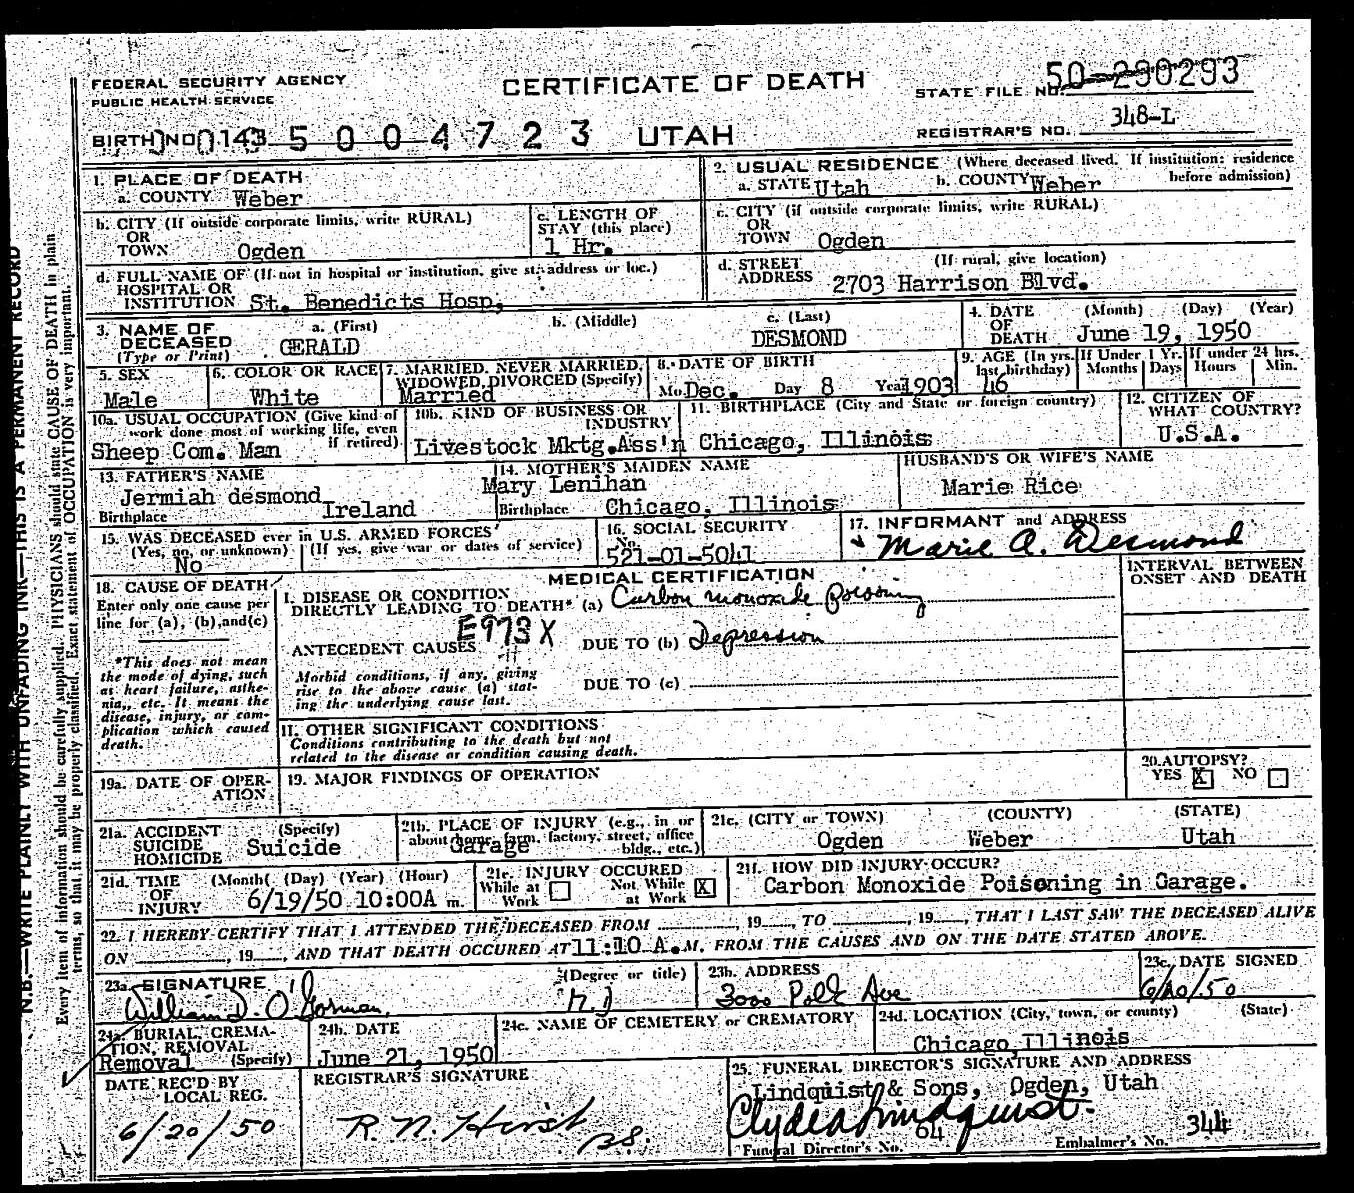 FEDERAL SECURITY AGENCY
PUBLIC HEALTH SERVICE
CERTIFICATE OF DEATH
STATE FILE NO. 50-290293
BIRTH NO. 0143 5004723 UTAH
REGISTRAR'S NO. 348-L
1. PLACE OF DEATH
a. COUNTY Weber
2. USUAL RESIDENCE (Where deceased lived. If institution: residence before admission)
a. STATE Utah b. COUNTY Weber
b. CITY (If outside corporate limits, write RURAL)
OR
TOWN Ogden
c. LENGTH OF
STAY (this place)
1 Hr.
c. CITY (if outside corporate limits, write RURAL)
OR
TOWN Ogden
d. FULL NAME OF (If not in hospital or institution, give st. address or loc.)
HOSPITAL OR
INSTITUTION St. Benedicts Hosp,
d. STREET (If rural, give location)
ADDRESS 2703 Harrison Blvd.
3. NAME OF
DECEASED
(Type or Print)
a. (First) b. (Middle) c. (Last)
GERALD DESMOND
4. DATE (Month) (Day) (Year)
OF
DEATH June 19, 1950
5. SEX
Male
6. COLOR OR RACE
White
7. MARRIED, NEVER MARRIED,
WIDOWED, DIVORCED (Specify)
Married
8. DATE OF BIRTH
Mo. Dec. Day 8 Year 1903
9. AGE (In yrs. last birthday)
46
If Under 1 Yr.
Months Days
If under 24 hrs.
Hours Min.
10a. USUAL OCCUPATION (Give kind of
work done most of working life, even
if retired)
Sheep Com. Man
10b. KIND OF BUSINESS OR
INDUSTRY
Livestock Mktg.Ass'n
11. BIRTHPLACE (City and State or foreign country)
Chicago, Illinois
12. CITIZEN OF
WHAT COUNTRY?
U.S.A.
13. FATHER'S NAME
Jermiah desmond
Birthplace Ireland
14. MOTHER'S MAIDEN NAME
Mary Lenihan
Birthplace Chicago, Illinois
HUSBAND'S OR WIFE'S NAME
Marie Rice
15. WAS DECEASED ever in U.S. ARMED FORCES
(Yes, no, or unknown) (If yes, give war or dates of service)
No
16. SOCIAL SECURITY
No.
521-01-5041
17. INFORMANT and ADDRESS
Marie A. Desmond
MEDICAL CERTIFICATION
INTERVAL BETWEEN
ONSET AND DEATH
18. CAUSE OF DEATH
Enter only one cause per
line for (a), (b), and (c)
*This does not mean
the mode of dying, such
as heart failure, asthe-
nia, etc. It means the
disease, injury, or com-
plication which caused
death.
I. DISEASE OR CONDITION
DIRECTLY LEADING TO DEATH* (a) Carbon monoxide poisoning
E973X
ANTECEDENT CAUSES DUE TO (b) Depression
Morbid conditions, if any, giving
rise to the above cause (a) stat-
ing the underlying cause last.
DUE TO (c)
II. OTHER SIGNIFICANT CONDITIONS
Conditions contributing to the death but not
related to the disease or condition causing death.
19a. DATE OF OPER-
ATION
19. MAJOR FINDINGS OF OPERATION
20. AUTOPSY?
YES X NO
21a. ACCIDENT (Specify)
SUICIDE
HOMICIDE
Suicide
21b. PLACE OF INJURY (e.g., in or
about home, farm, factory, street, office
bldg., etc.)
Garage
21c. (CITY or TOWN) (COUNTY) (STATE)
Ogden Weber Utah
21d. TIME (Month) (Day) (Year) (Hour)
OF
INJURY 6/19/50 10:00A m.
21e. INJURY OCCURED
While at Work Not While at Work X
21f. HOW DID INJURY OCCUR?
Carbon Monoxide Poisoning in Garage.
22. I HEREBY CERTIFY THAT I ATTENDED THE DECEASED FROM , 19 , TO , 19 , THAT I LAST SAW THE DECEASED ALIVE
ON , 19 , AND THAT DEATH OCCURED AT 11:10 A.M. FROM THE CAUSES AND ON THE DATE STATED ABOVE.
23a. SIGNATURE (Degree or title)
William D. O'Gorman M.D
23b. ADDRESS
3000 Polk Ave
23c. DATE SIGNED
6/20/50
24a. BURIAL, CREMA-
TION, REMOVAL
(Specify)
Removal
24b. DATE
June 21, 1950
24c. NAME OF CEMETERY or CREMATORY
24d. LOCATION (City, town, or county) (State)
Chicago, Illinois
DATE REC'D BY
LOCAL REG.
6/20/50
REGISTRAR'S SIGNATURE
R. N. Hirst
25. FUNERAL DIRECTOR'S SIGNATURE AND ADDRESS
Lindquist & Sons, Ogden, Utah
Clyde Lindquist
Funeral Director's No. 64 Embalmer's No. 344
N.B.—WRITE PLAINLY WITH UNFADING INK—THIS IS A PERMANENT RECORD
Every item of information should be carefully supplied. PHYSICIANS should state CAUSE OF DEATH in plain
terms, so that it may be properly classified. Exact statement of OCCUPATION is very important.